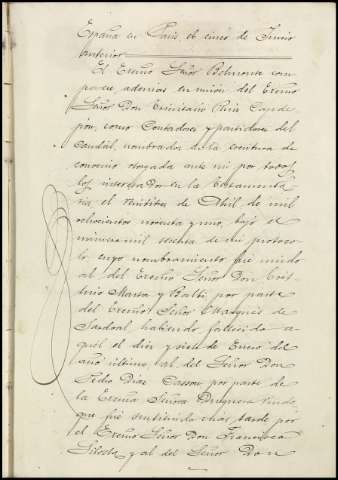 España en París el cinco de Junio
anterior
El Excmo Señor Belmonte com
parece además en unión del Excmo
Señor Don Trinitario Ruiz Capde
pón, como Contadores y partidores del
caudal, nombrados en la escritura de
convenio otorgada ante mi por todos
los interesados en la testamenta
ria el veintitres de Abril de mil
ochocientos noventa y uno, bajo el
número mil setenta de mi protoco
lo cuyo nombramiento fué unido
al del Excmo Señor Don
Manso y por parte
del Excmo Señor Marqués de
Sardoal habiendo fallecido a
quel el diez y siete de Enero del
año último, al del Señor Don
Pedro Diaz Cassou por parte de
la Excma Señora Duquesa viuda
que fué sustituido más tarde por
el Excmo Señor Don Francisco
Silvela y al del Señor Don